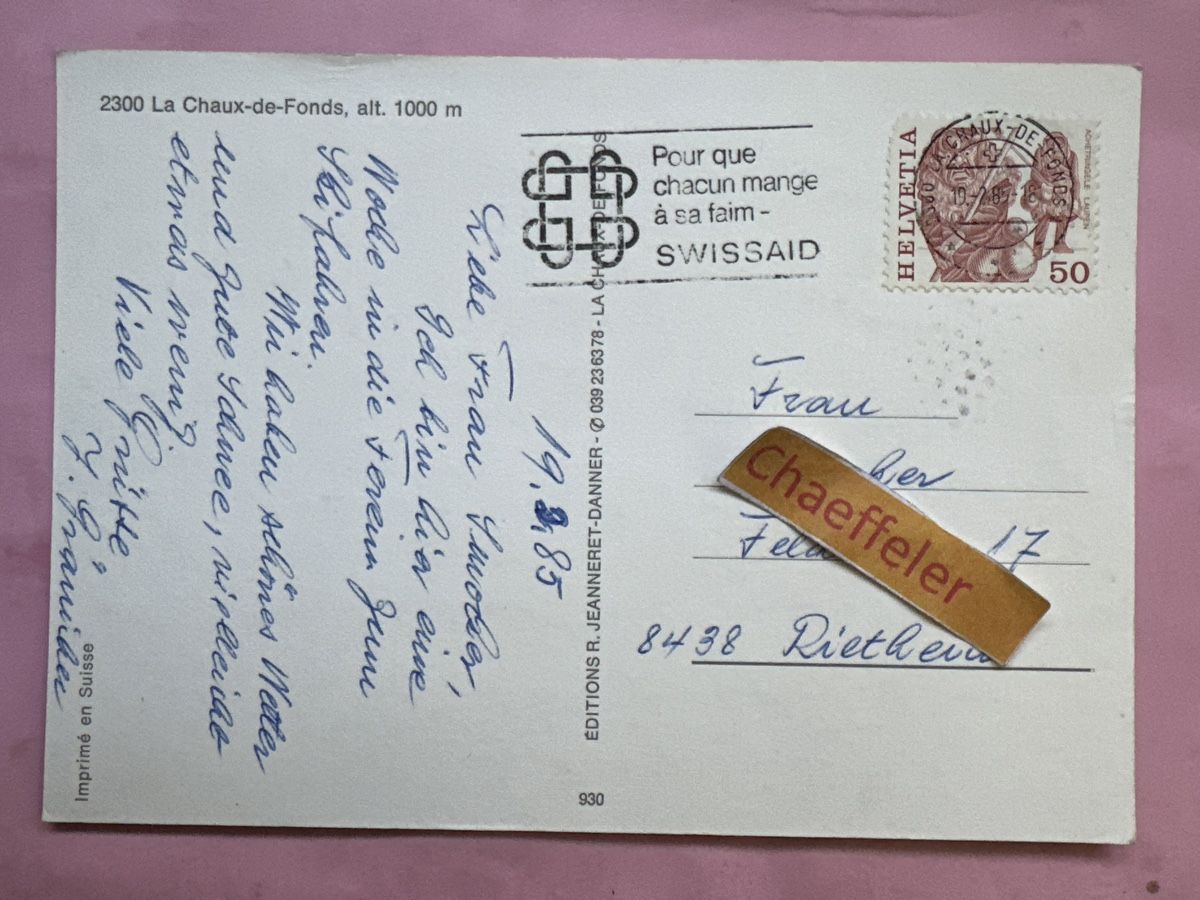 2300 La Chaux-de-Fonds, alt. 1000 m
19.2.85
Liebe Frau
Ich bin hier eine
Woche in die Ferien zum
Skifahren.
Wir haben schönes Wetter
und gute Schnee, vielleicht
etwas wenig
Viele Grüsse
Imprimé en Suisse
ÉDITIONS R. JEANNERET-DANNER - ✆ 039 23 63 78 - LA CHAUX-DE-FONDS
930
Pour que
chacun mange
à sa faim -
SWISSAID
HELVETIA
ACHETRINGELE LAUPEN
50
2300 LA CHAUX-DE-FONDS
19.-2.85-18
Frau
Chaeffeler
17
8438 Rietheim